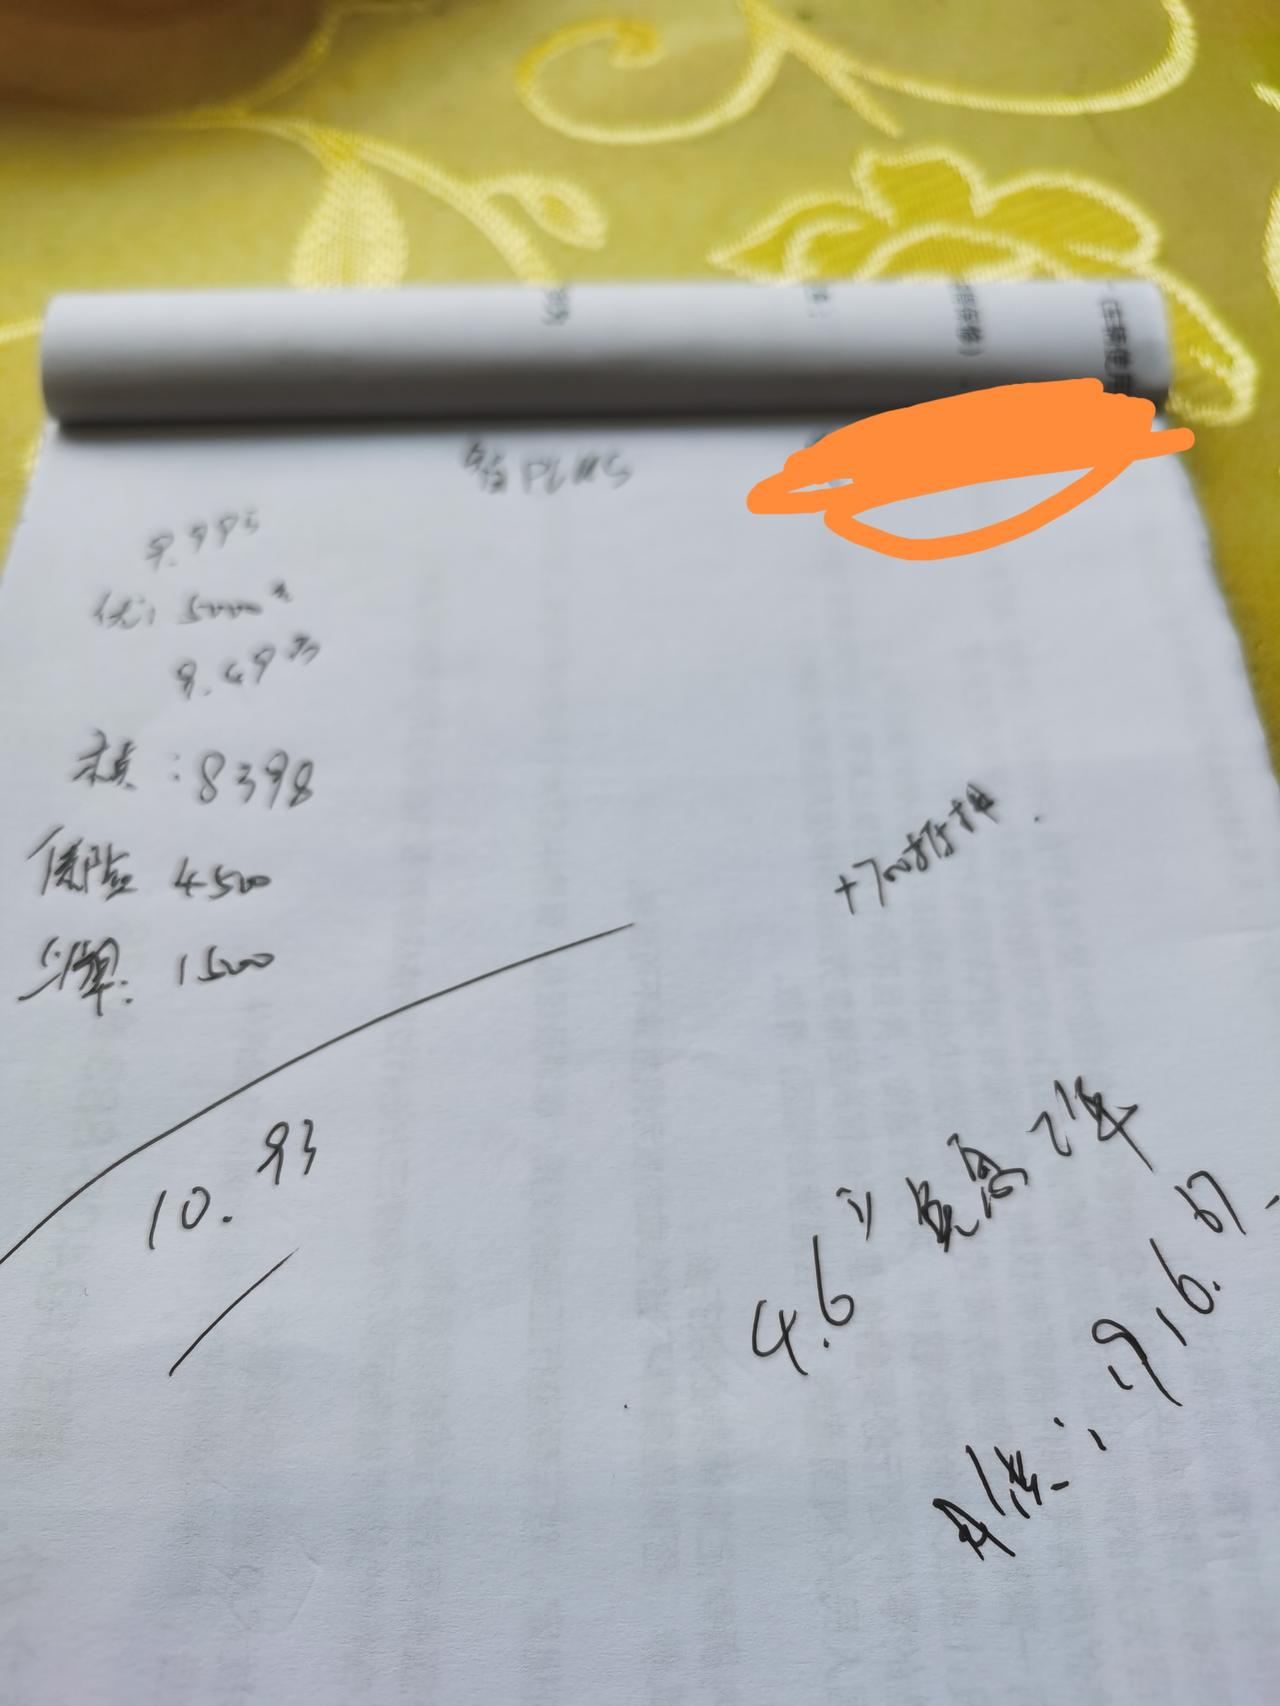 PLUS
9.99万
优: 5000元
9.49万
税: 8398
保险 4500
上牌: 1500
10.93
+700抵押
4.6万 免息2年
月供: 1916.67